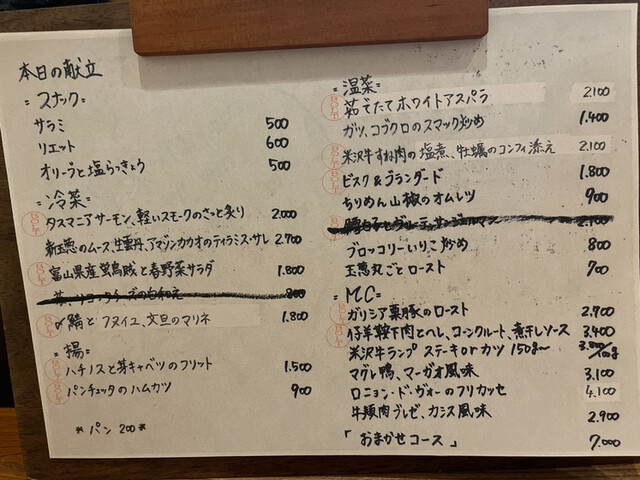 本日の献立
=スナック=
サラミ 500
リエット 600
オリーブと塩らっきょう 500
=冷菜=
タスマニアサーモン、軽いスモークのさっと炙り 2.000
新玉葱のムース、生雲丹、アマゾンカカオのティラミス・サレ 2.700
富山県産蛍烏賊と春野菜サラダ 1.800
〆鯖とフヌイユ、文旦のマリネ 1.800
=揚=
ハチノスと芽キャベツのフリット 1.500
パンチェッタのハムカツ 900
*パン 200*
=温菜=
茹でたてホワイトアスパラ 2.100
ガツ、コブクロのスマック炒め 1.400
米沢牛すね肉の塩煮、牡蠣のコンフィ添え 2.100
ビスク&ブランダード 1.800
ちりめん山椒のオムレツ 900
ブロッコリーいりこ炒め 800
玉葱丸ごとロースト 700
=MC=
ガリシア栗豚のロースト 2.900
仔羊鞍下肉とヘレ、コーンクルート、煮干しソース 3.400
米沢牛ランプ ステーキorカツ 150g〜 /100g
マグレ鴨、マーガオ風味 3.100
ロニョン・ド・ヴォーのフリカッセ 4.100
牛頬肉ブレゼ、カシス風味 2.900
「おまかせコース」 7.000